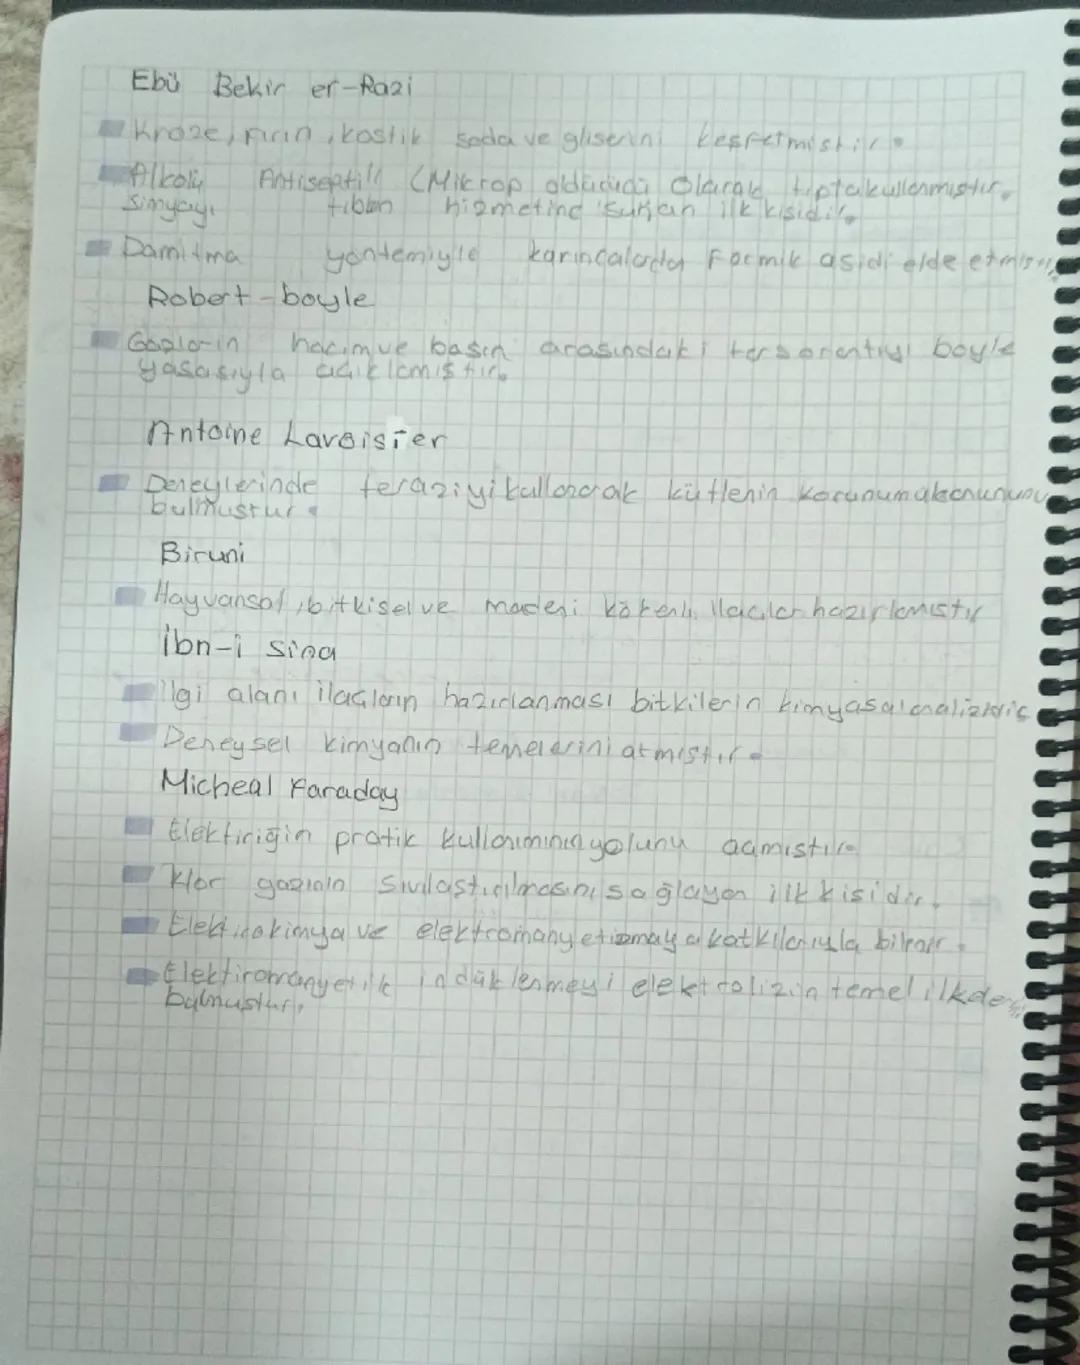 Ebû Bekir er-Razi
Kroze, fırın, kostik soda ve gliserini keşfetmiştir.
Alkolü Antiseptik (Mikrop öldürücü olarak tıptakullanmıştır.
Simyayı tıbbın hizmetine sunan ilk kişidir.
Damıtma yöntemiyle karıncalardan Formik asidi elde etmiştir.
Robert-boyle
Gazların hacimve basın arasındaki ters orantıyı boyle
yasasıyla açıklamıştır.
Antoine Lavoisier
Deneylerinde teraziyi kullanarak kütlenin korunumakanununu
bulmuştur.
Biruni
Hayvansal, bitkisel ve madeni kökenli ilaçlar hazırlamıştır
İbn-i Sina
İlgi alanı ilaçların hazırlanması bitkilerin kimyasal analizidir
Deneysel kimyanın temelerini atmıştır.
Micheal Faraday
Elektiriğin pratik kullanımının yolunu açmıştır.
Klor gazının sıvılaştırılmasını sağlayan ilk kişidir.
Elektirokimya ve elektromanyetizmaya katkılarıyla bilinir.
Elektiromanyetik indüklenmeyi elektrolizin temel ilkde
bulmuştur.